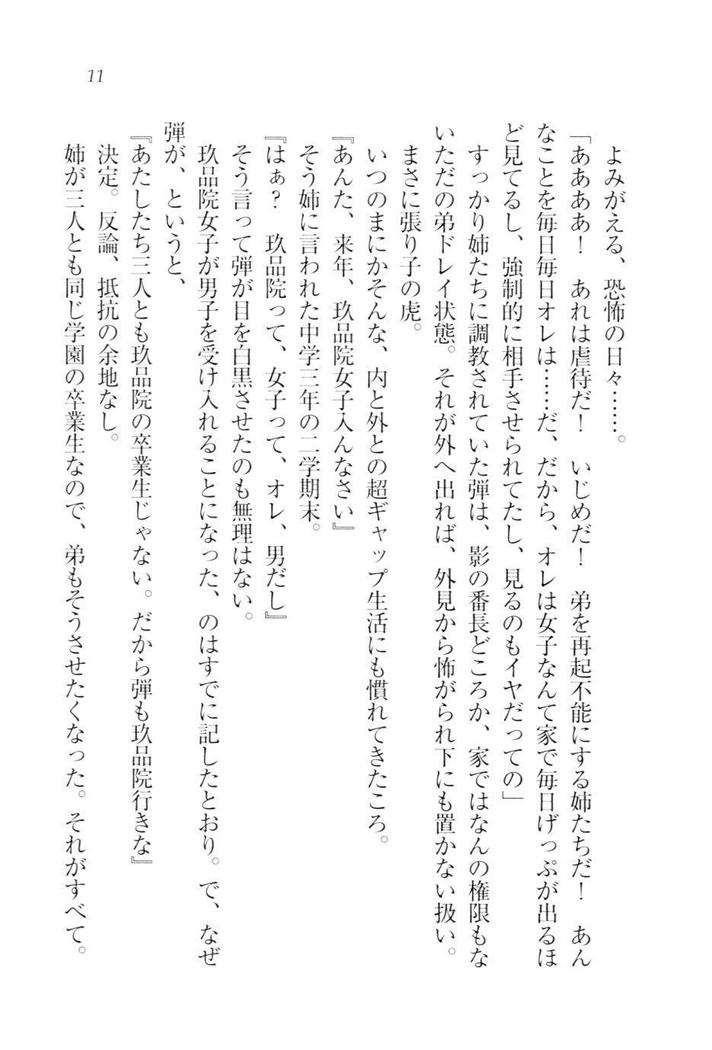 11
よみがえる、恐怖の日々……。
「ああああ！　あれは虐待だ！　いじめだ！　弟を再起不能にする姉たちだ！　あん
なことを毎日毎日オレは……だ、だから、オレは女子なんて家で毎日げっぷが出るほ
ど見てるし、強制的に相手させられてたし、見るのもイヤだっての」
すっかり姉たちに調教されていた弾は、影の番長どころか、家ではなんの権限もな
いただの弟ドレイ状態。それが外へ出れば、外見から怖がられ下にも置かない扱い。
まさに張り子の虎。
いつのまにかそんな、内と外との超ギャップ生活にも慣れてきたころ。
『あんた、来年、玖品院女子入んなさい』
そう姉に言われた中学三年の二学期末。
『はぁ？　玖品院って、女子って、オレ、男だし』
そう言って弾が目を白黒させたのも無理はない。
玖品院女子が男子を受け入れることになった、のはすでに記したとおり。で、なぜ
弾が、というと、
『あたしたち三人とも玖品院の卒業生じゃない。だから弾も玖品院行きな』
決定。反論、抵抗の余地なし。
姉が三人とも同じ学園の卒業生なので、弟もそうさせたくなった。それがすべて。